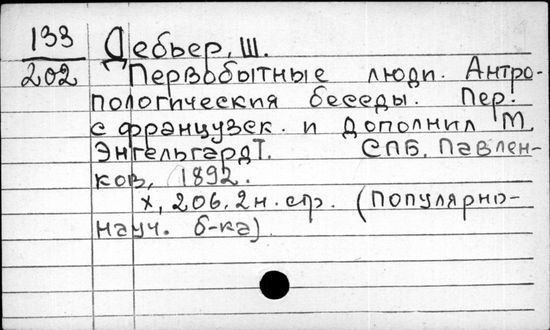 133
202
Дебьер, Ш.
Первобытные люди. Антро-
пологические беседы. Пер.
с французск. и дополнил М.
Энгельгардт. СПБ, Павлен-
ков, 1892.
X, 206, 2 н. стр. (Популярно-
науч. б-ка).